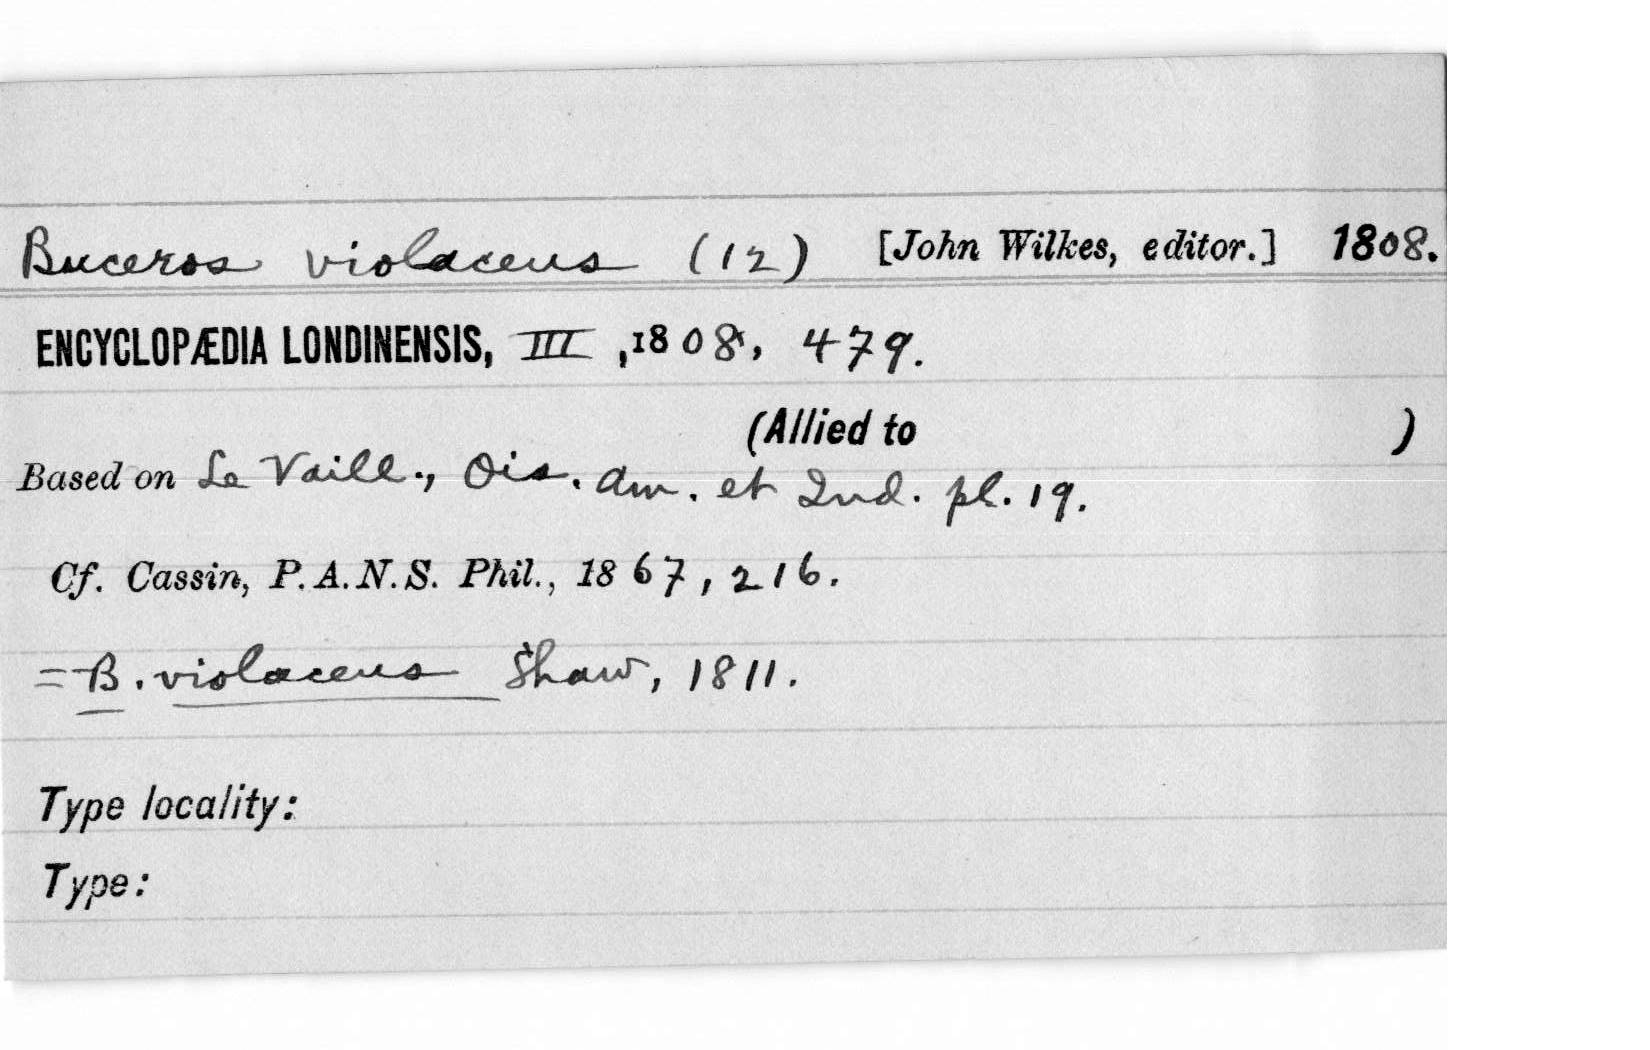 Buceros violaceus (12) [John Wilkes, editor.] 1808.
ENCYCLOPÆDIA LONDINENSIS, III, 1808, 479.
(Allied to )
Based on Le Vaill., Ois. Am. et Ind. pl. 19.
Cf. Cassin, P.A.N.S. Phil., 1867, 216.
=B. violaceus Shaw, 1811.
Type locality:
Type: